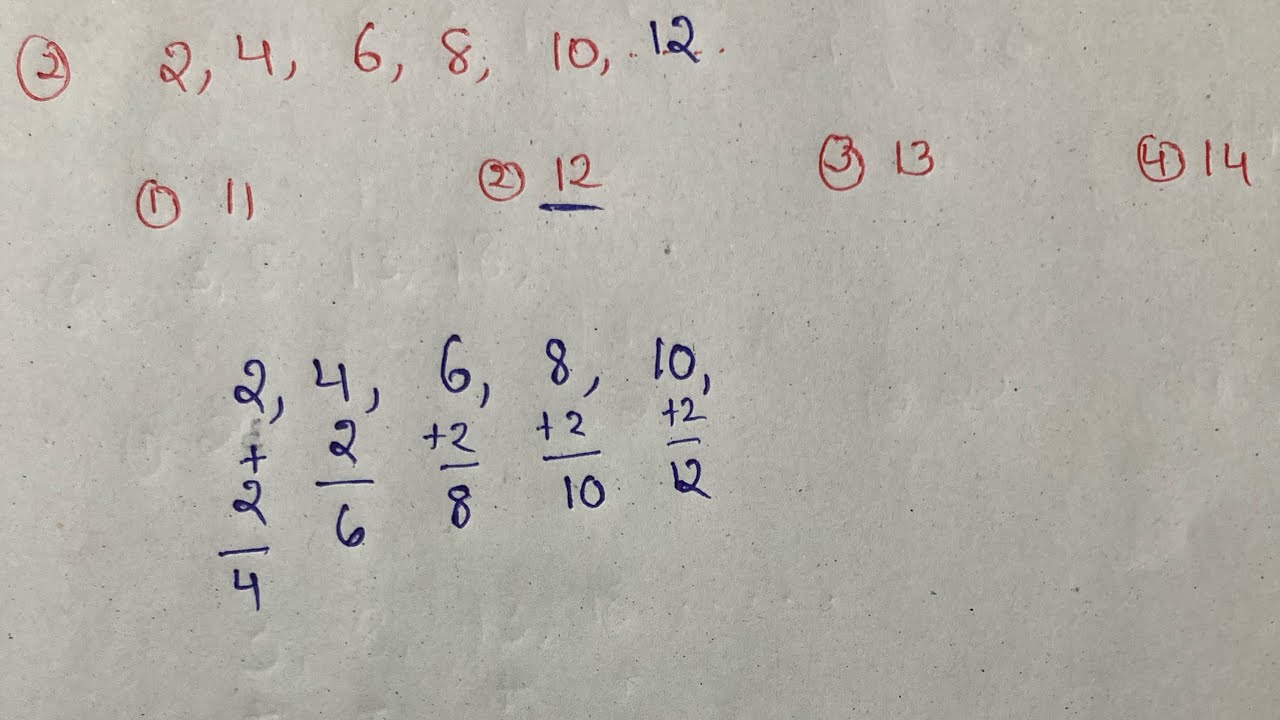 ② 2, 4, 6, 8, 10, ..12..
① 11 ② 12 ③ 13 ④ 14
2, 4, 6, 8, 10,
+ 2 +2 +2 +2
2 6 8 10 12
4